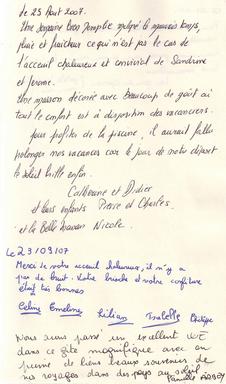 le 25 Août 2007.
Une semaine bien remplie malgré le mauvais temps,
pluie et fraicheur ce qui n'est pas le cas de
l'acceuil chaleureux et convivial de Sandrine
et Jerome.
Une maison décorée avec beaucoup de goût où
tout le confort est à disposition des vacanciers.
Pour profiter de la piscine, il aurait fallu
prolonger nos vacances car le jour de notre départ
le soleil brille enfin.
Catherine et Didier
et leurs enfants Pierre et Charles
et la Belle maman Nicole.
Le 23/09/07
Merci de votre acceuil chaleureux, il n'y a
pas de bruit. Votre brioche et votre confiture
étaient très bonnes
Céline Emeline Lilian Isabelle Philippe
Nous avons passé un excellent WE
dans ce gîte magnifique avec en
prime de biens beaux souvenirs de
nos voyages dans des pays au soleil
Famille